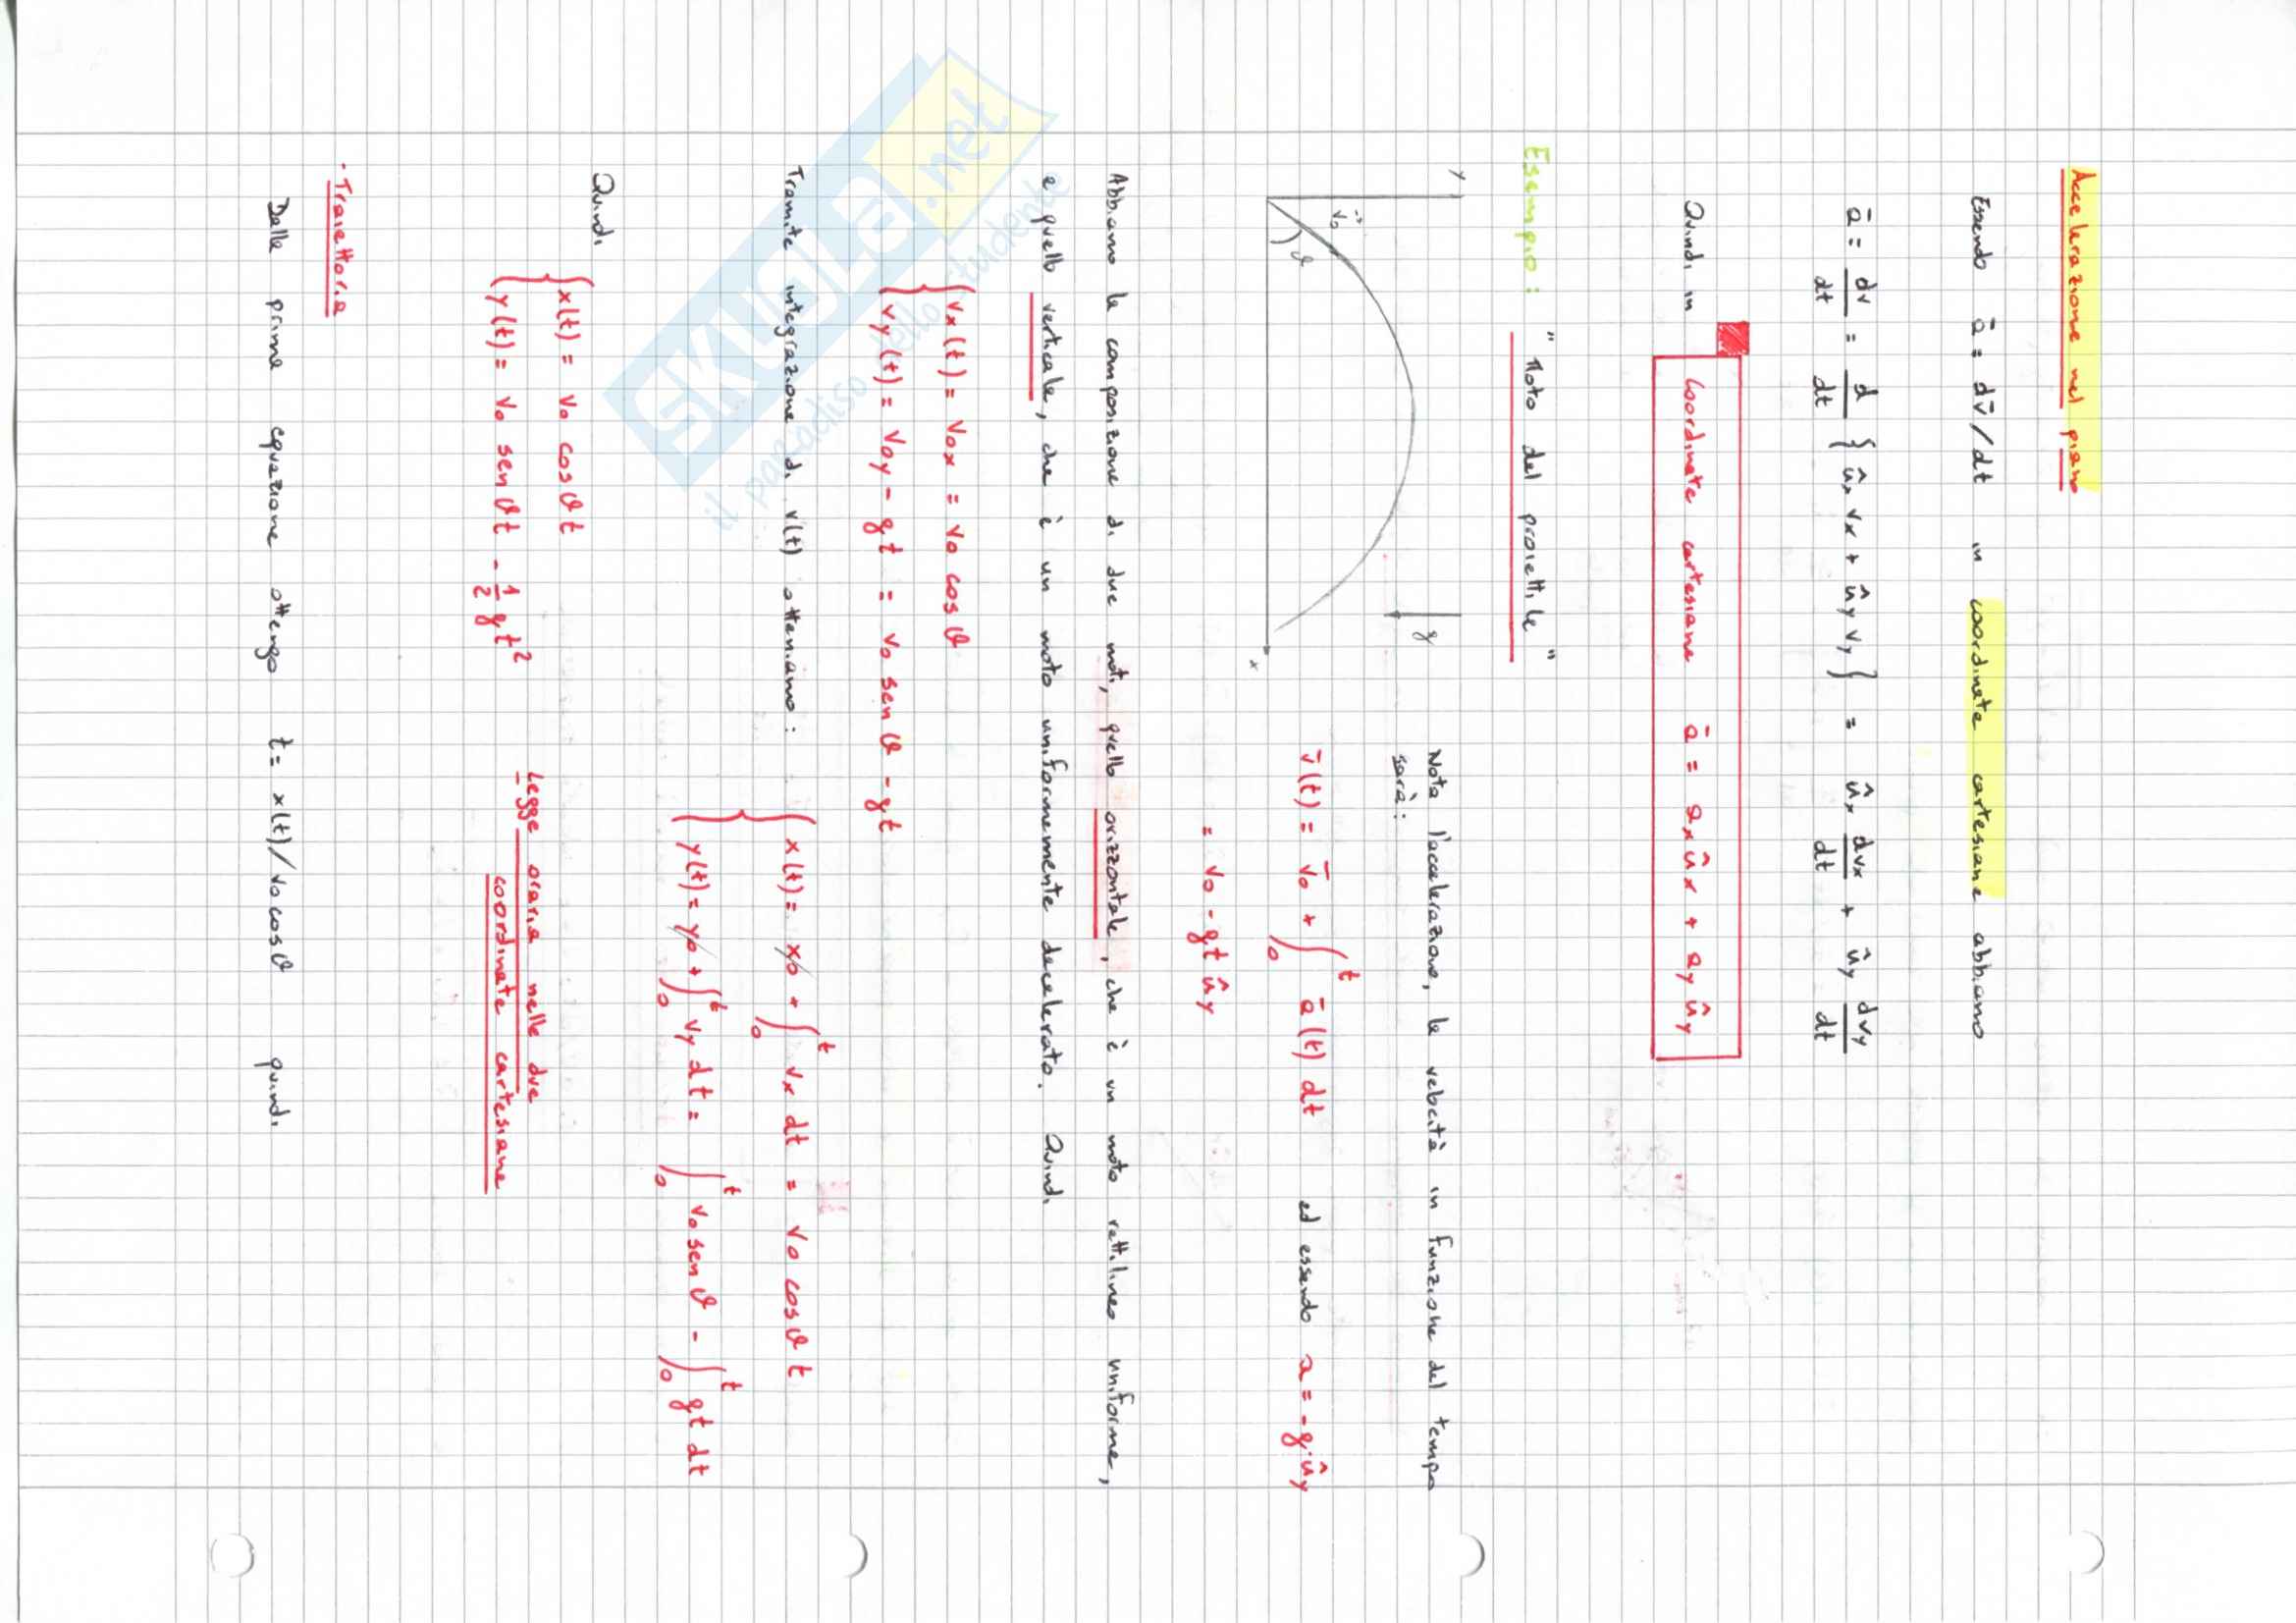 Accelerazione nel piano
Essendo ā = dv̄/dt in coordinate cartesiane abbiamo
ā = dv/dt = d/dt { ûx vx + ûy vy } = ûx dvx/dt + ûy dvy/dt
Quindi in Coordinate cartesiane ā = ax ûx + ay ûy
Esempio: "Moto del proiettile"
y
v̄0
ϑ
g
x
Nota l'accelerazione, la velocità in funzione del tempo
sarà:
v̄(t) = v̄0 + ∫0^t ā(t) dt ed essendo a = -g·ûy
= v0 - gt ûy
Abbiamo la composizione di due moti, quello orizzontale, che è un moto rettilineo uniforme,
e quello verticale, che è un moto uniformemente decelerato. Quindi
{ vx(t) = v0x = v0 cosϑ
{ vy(t) = v0y - gt = v0 senϑ - gt
Tramite integrazione di v(t) otteniamo:
{ x(t) = x0 + ∫0^t vx dt = v0 cosϑ t
{ y(t) = y0 + ∫0^t vy dt = ∫0^t v0 senϑ - ∫0^t gt dt
Quindi
{ x(t) = v0 cosϑt
{ y(t) = v0 senϑt - 1/2 gt²
- Legge oraria nelle due
coordinate cartesiane
- Traiettoria
Dalla prima equazione ottengo t = x(t)/v0cosϑ quindi
SKUOLA.net
il paradiso dello studente